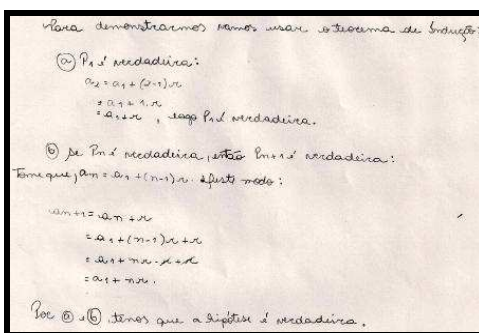 Para demonstrarmos vamos usar o teorema de Indução:
ⓐ P₁ é verdadeira:
a₂ = a₁ + (2-1)r
= a₁ + 1.r
= a₁ + r , logo P₁ é verdadeira.
ⓑ se Pn é verdadeira, então Pn+1 é verdadeira:
Tome que, an = a₁ + (n-1)r. deste modo:
an+1 = an + r
= a₁ + (n-1)r + r
= a₁ + nr - r + r
= a₁ + nr.
Por ⓐ e ⓑ, temos que a hipótese é verdadeira.